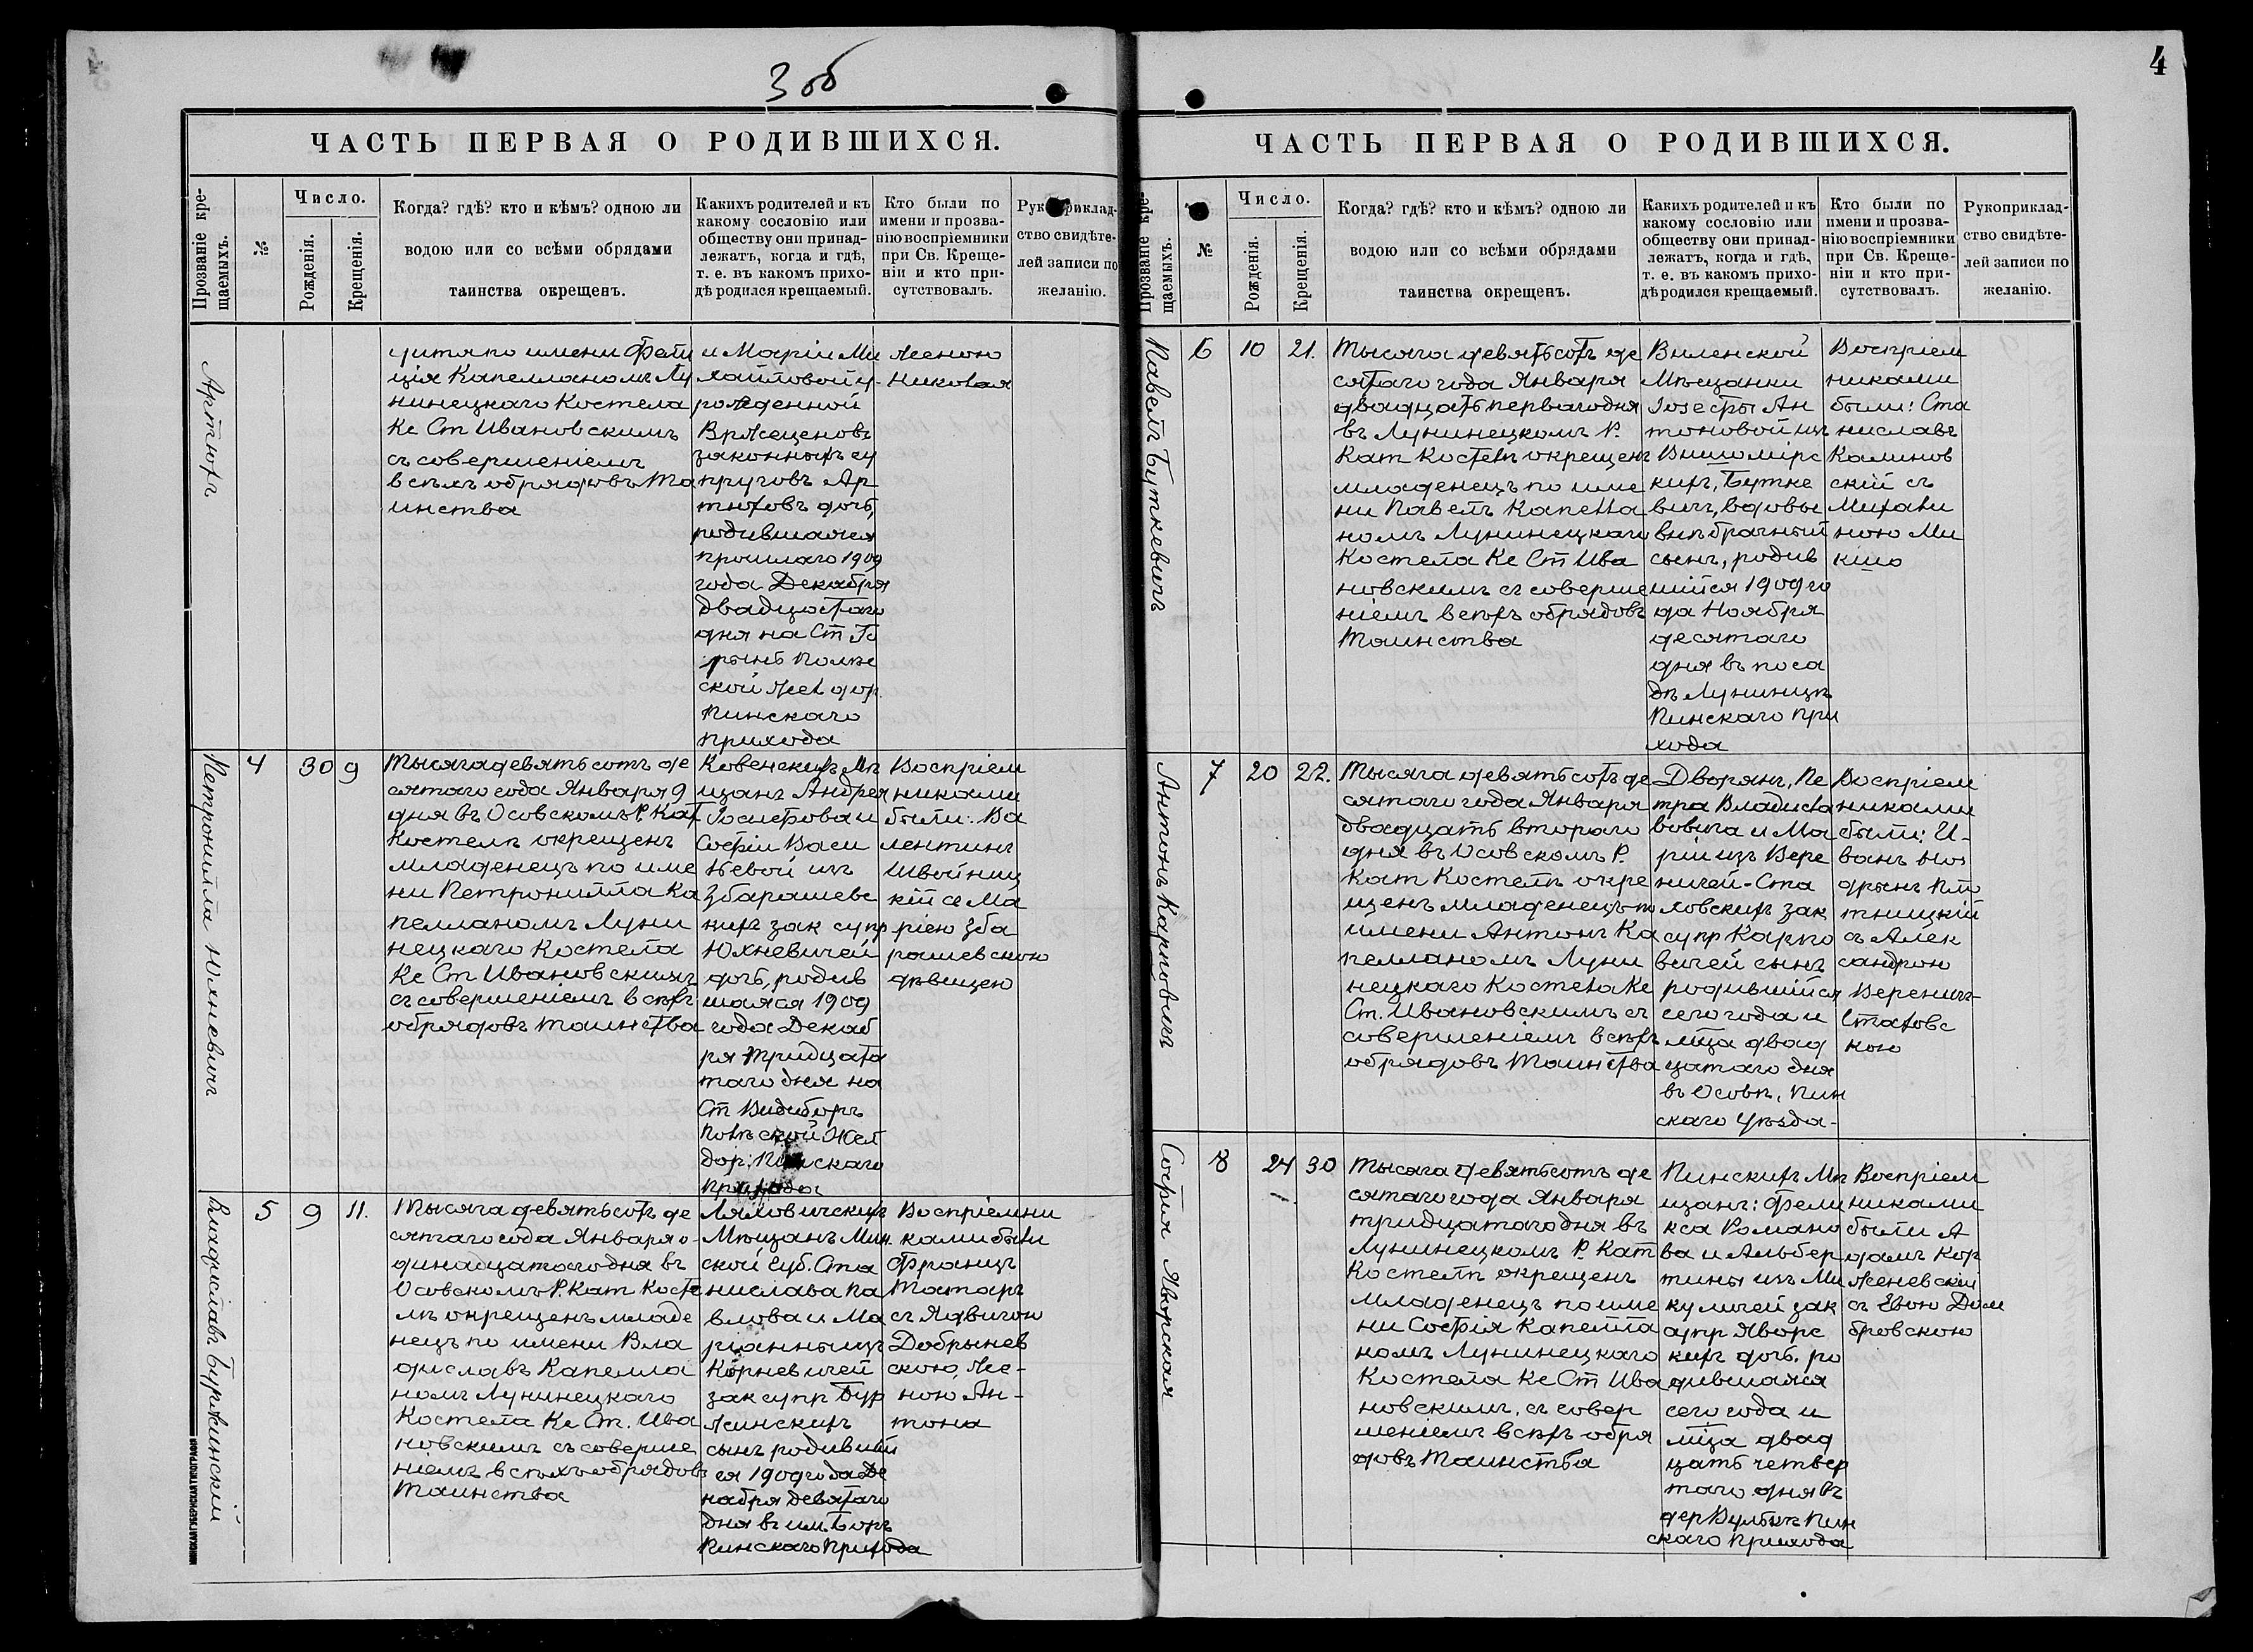 3 об
ЧАСТЬ ПЕРВАЯ О РОДИВШИХСЯ.
Прозваніе кре-
щаемыхъ.
№
Число.
Рожденія.
Крещенія.
Когда? гдѣ? кто и кѣмъ? одною ли
водою или со всѣми обрядами
таинства окрещенъ.
Какихъ родителей и къ
какому сословію или
обществу они принад-
лежатъ, когда и гдѣ,
т. е. въ какомъ прихо-
дѣ родился крещаемый.
Кто были по
имени и прозва-
нію воспріемники
при Св. Креще-
ніи и кто при-
сутствовалъ.
Рукоприклад-
ство свидѣте-
лей записи по
желанію.
Артюхъ
дитя по имени Фели
ція Капелланомъ Лу
нинецкаго Костела
Кс Ст Ивановскимъ
съ совершеніемъ
всѣхъ обрядовъ Та
инства
и Маріи Ми
хайловой у-
рожденной
Вржеценовъ
законныхъ су
пруговъ Ар
тюховъ дочь,
родившаяся
прошлаго 1909
года Декабря
двадцатаго
дня на Ст Го
рынь Полѣс
ской Жел дор.
Пинскаго
прихода
Женою
Николая
Петронилла Юхневичъ
4
30
9
Тысяча девятьсотъ де
сятаго года Января 9
дня въ Осовскомъ Р. Кат
Костелѣ окрещенъ
младенецъ по име
ни Петронилла Ка
пелланомъ Луни
нецкаго Костела
Кс Ст Ивановскимъ
съ совершеніемъ всѣхъ
обрядовъ таинства
Ковенскихъ Мѣ
щанъ Андрея
Іосифова и
Софіи Васи
льевой изъ
Збарашевс
кихъ зак супр
Юхневичей
дочь, родив
шаяся 1909
года Декаб
ря тридцата
таго дня на
Ст Видиборъ
Полѣской Жел
дор. Пинскаго
Прихода
Воспріем
никами
были: Ва
лентинъ
Швойниц
кій съ Ма
ріею Зба
рашевскою
дѣвицею
Владиславъ Буржинскій
5
9
11.
Тысяча девятьсотъ де
сятаго года Января о-
динадцатаго дня въ
Осовскомъ Р. Кат Косте
лѣ окрещенъ младе
нецъ по имени Вла
диславъ Капелла
номъ Лунинецкаго
Костела Кс Ст. Ива
новскимъ съ соверше
ніемъ всѣхъ обрядовъ
Таинства
Ляховичскихъ
Мѣщанъ Мин.
ской Губ. Ста
нислава Па
влова и Ма
ріанны изъ
Корневичей
зак супр Бур
жинскихъ
сынъ родивший
ся 1909 года Де
кабря девятаго
дня въ им. Боръ
Пинскаго Прихода
Воспріемни
ками были
Францъ
Татаръ
съ Ядвигою
Добрынев
скою, Же-
ною Ан-
тона
МИНСКАЯ ГУБЕРНСКАЯ ТИПОГРАФІЯ
4
ЧАСТЬ ПЕРВАЯ О РОДИВШИХСЯ.
Прозваніе кре-
щаемыхъ.
№
Число.
Рожденія.
Крещенія.
Когда? гдѣ? кто и кѣмъ? одною ли
водою или со всѣми обрядами
таинства окрещенъ.
Какихъ родителей и къ
какому сословію или
обществу они принад-
лежатъ, когда и гдѣ,
т. е. въ какомъ прихо-
дѣ родился крещаемый.
Кто были по
имени и прозва-
нію воспріемники
при Св. Креще-
ніи и кто при-
сутствовалъ.
Рукоприклад-
ство свидѣте-
лей записи по
желанію.
Павелъ Буткевичъ
6
10
21.
Тысяча девятьсотъ де
сятаго года Января
двадцать перваго дня
въ Лунинецкомъ Р.
Кат Костелѣ окрещенъ
младенецъ по име
ни Павелъ Капелла
номъ Лунинецкаго
Костела Кс Ст Ива
новскимъ съ соверше
ніемъ всѣхъ обрядовъ
Таинства
Виленской
Мѣщанки
Іозефы Ан
тоновой изъ
Вишомірс
кихъ, Бутке
вичъ, вдовы
внѣбрачный
сынъ, родив
шійся 1909 го
да Ноября
десятаго
дня въ поса
дѣ Лунинцѣ
Пинскаго при
хода
Воспріем
никами
были: Ста
ниславъ
Калинов
скій съ
Михали
ною Ми
кшо
Антонъ Карповичъ
7
20
22.
Тысяча девятьсотъ де
сятаго года Января
двадцать втораго
дня въ Осовскомъ Р.
Кат Костелѣ окре
щенъ младенецъ по
имени Антонъ Ка
пелланомъ Луни
нецкаго Костела Кс
Ст. Ивановскимъ съ
совершеніемъ всѣхъ
обрядовъ Таинства
Дворянъ, Пе
тра Владисла
вовича и Ма
ріи изъ Вере
ничей-Ста
ховскихъ зак
супр Карпо
вичей сынъ
родившійся
сего года и
мѣца двад
цатаго дня
въ Осовѣ, Пин
скаго Уѣзда-
Воспріем
никами
были: И-
ванъ Но
дрынъ Пло
тницкій
съ Алек
сандрою
Вереничъ-
Стаховс
кою
Софія Яворская
8
24
30
Тысяча девятьсотъ де
сятаго года Января
тридцатаго дня въ
Лунинецкомъ Р. Кат
Костелѣ окрещенъ
младенецъ по име
ни Софія Капелла
номъ Лунинецкаго
Костела Кс Ст Ива
новскимъ, съ совер
шеніемъ всѣхъ обря
довъ Таинства
Пинскихъ Мѣ
щанъ: Фели
кса Романо
ва и Альбер
тины изъ Ми
куличей зак
супр Яворс
кихъ дочь. ро
дившаяся
сего года и
мѣца двад
цать четвер
таго дня въ
дер Вулькѣ Пин
скаго Прихода
Воспріем
никами
были А
дамъ Кор
женевскій
съ Евою Дом
бровскою